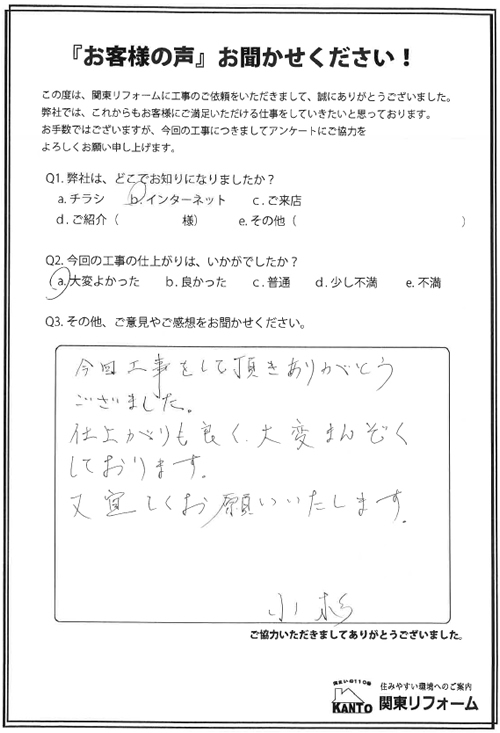 『お客様の声』お聞かせください！
この度は、関東リフォームに工事のご依頼をいただきまして、誠にありがとうございました。
弊社では、これからもお客様にご満足いただける仕事をしていきたいと思っております。
お手数ではございますが、今回の工事につきましてアンケートにご協力を
よろしくお願い申し上げます。
Q1. 弊社は、どこでお知りになりましたか？
a. チラシ　b. インターネット　c. ご来店
d. ご紹介（　　　　様）　e. その他（　　　　　　　　　　）
Q2. 今回の工事の仕上がりは、いかがでしたか？
a. 大変よかった　b. 良かった　c. 普通　d. 少し不満　e. 不満
Q3. その他、ご意見やご感想をお聞かせください。
今回工事をして頂きありがとう
ございました。
仕上がりも良く、大変まんぞく
しております。
又宜しくお願いいたします。
小杉
ご協力いただきましてありがとうございました。
住まいの110番
KANTO
住みやすい環境へのご案内
関東リフォーム